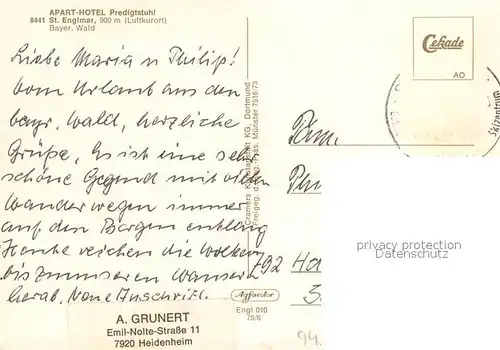 APART-HOTEL Predigtstuhl
8441 St. Englmar, 900 m (Luftkurort)
Bayer. Wald
Liebe Maria u Philip!
Vom Urlaub aus den
bayr. Wald, herzliche
Grüße, Es ist eine sehr
schöne Gegend mit vielen
Wanderwegen immer
auf den Bergen entlang
Heute reichen die Wolken
bis zu unseren
herab. Neue Anschrift.
A. GRUNERT
Emil-Nolte-Straße 11
7920 Heidenheim
Cramers Kunstanstalt KG, Dortmund
Freigeg. d. Reg.-Präs. Münster 7516/73
Agfacolor
Engl 010
75/6
Cekade
AO
Fam.
792
privacy protection
Datenschutz